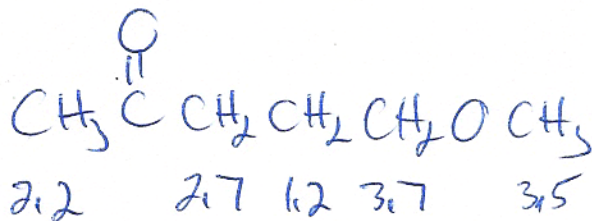 O
CH₃ C CH₂ CH₂ CH₂ O CH₃
2,2 2,7 1,2 3,7 3,5